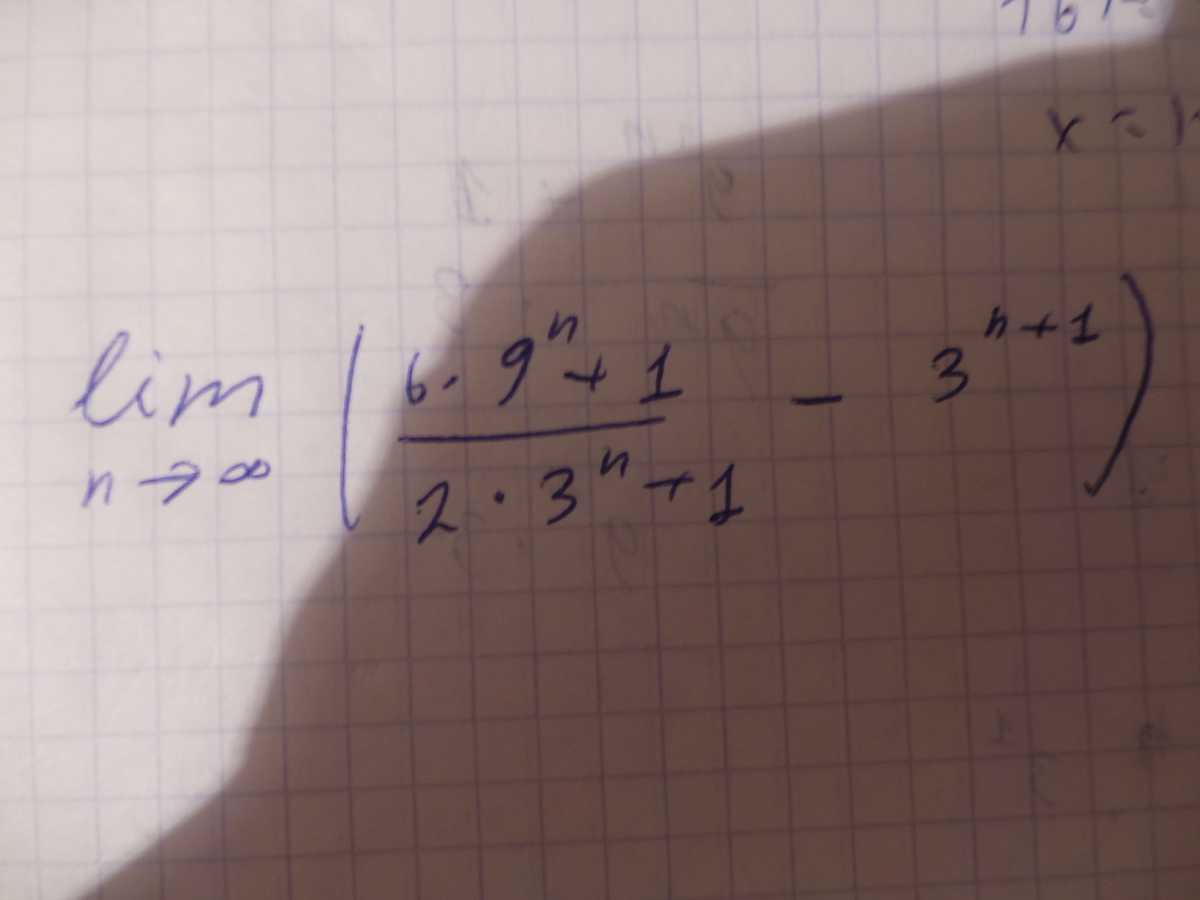 x =
lim n→∞ ( (6 · 9^n + 1) / (2 · 3^n + 1) − 3^(n+1) )